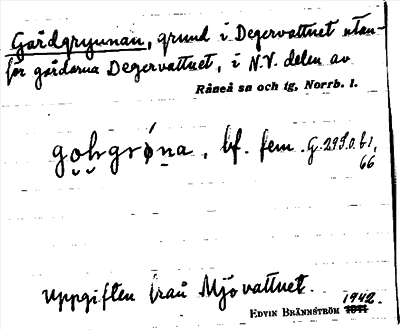 Gårdgrynnan, grund i Degervattnet utan-
för gårdarna Degervattnet, i N.V. delen av
Råneå sn och tg, Norrb. l.
go̮ḫgró̱na, bf. fem. G. 293. o. b 1,
66
Uppgiften från Mjövattnet.
EDVIN BRÄNNSTRÖM 1942.